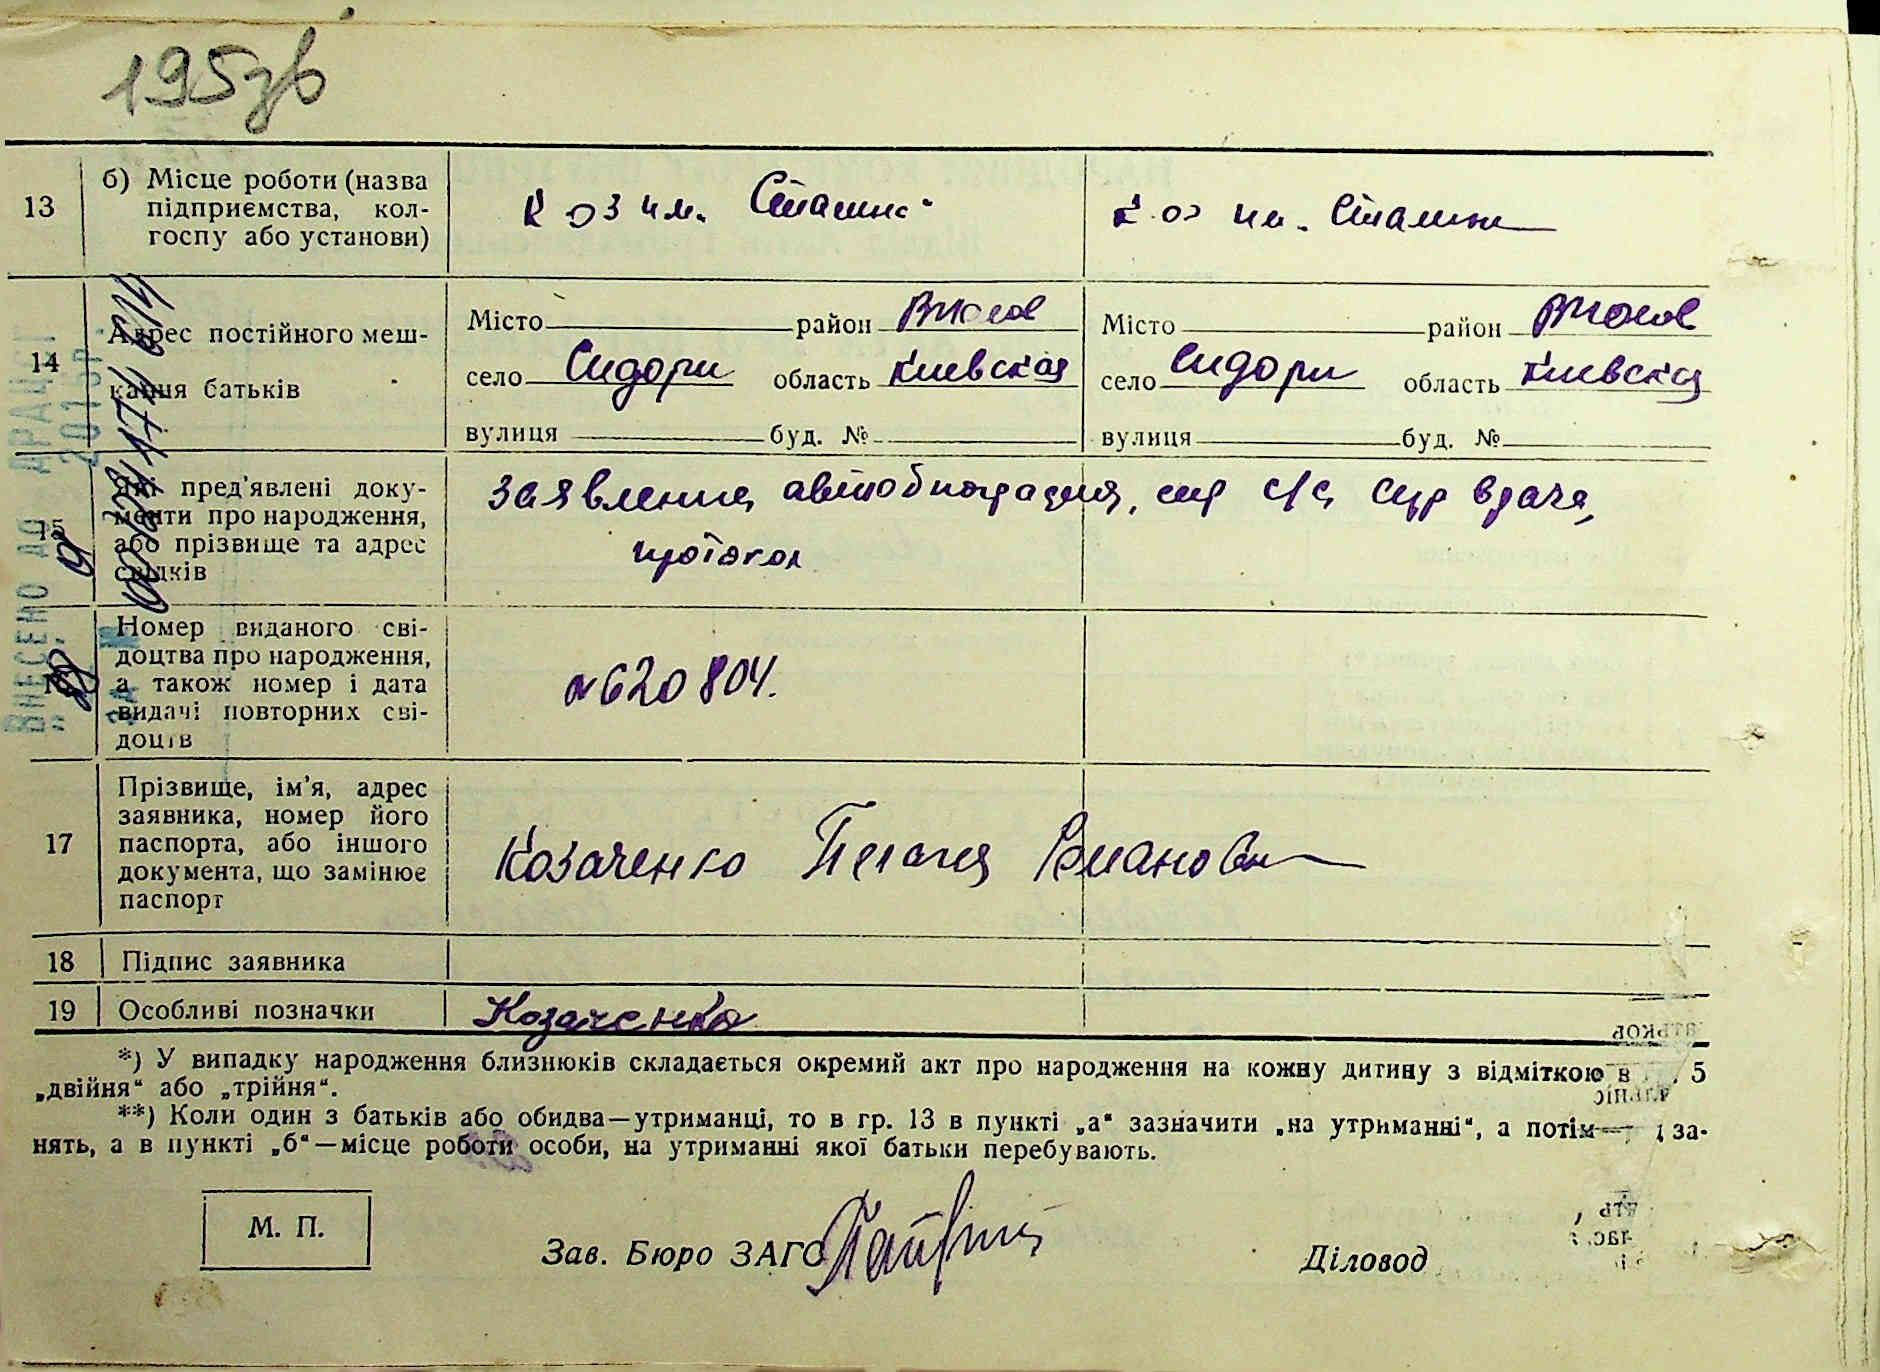 195зв
13
б) Місце роботи (назва
підприємства, кол-
госпу або установи)
к оз им. Сталина
к оз им. Сталина
14
Адрес постійного меш-
кання батьків
Місто район
село Сидори область Киевская
вулиця буд. №
Місто район
село Сидори область Киевская
вулиця буд. №
15
Які пред'явлені доку-
менти про народження,
або прізвище та адрес
свідків
заявление, автобиография,
протокол
Номер виданого сві-
доцтва про народження,
а також номер і дата
видачі повторних сві-
доцтв
№620804.
17
Прізвище, ім'я, адрес
заявника, номер його
паспорта, або іншого
документа, що замінює
паспорт
Козаченко Пелагея
18
Підпис заявника
19
Особливі позначки
Козаченко
ВНЕСЕНО ДО ДРАЦСГ
201 р.
ЗА №
*) У випадку народження близнюків складається окремий акт про народження на кожну дитину з відміткою в 5
„двійня“ або „трійня“.
**) Коли один з батьків або обидва—утриманці, то в гр. 13 в пункті „а“ зазначити „на утриманні“, а потім— за-
нять, а в пункті „б“—місце роботи особи, на утриманні якої батьки перебувають.
М. П.
Зав. Бюро ЗАГС
Діловод